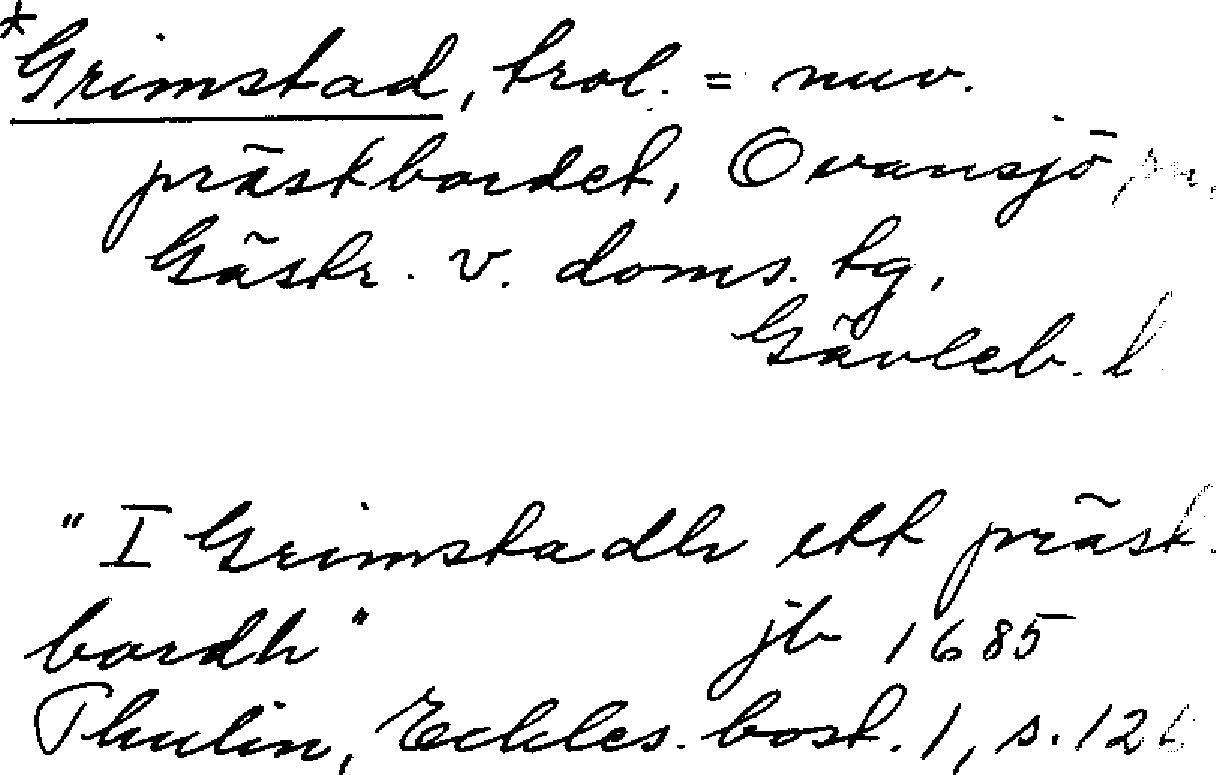 *Grimstad, trol. = nuv.
prästbordet, Ovansjö sn,
Gästr. v. doms. tg,
Gävleb. l
"I Grimstadh ett präst-
bordh" jb 1685
Thulin, Eckles. bost. 1, s. 126